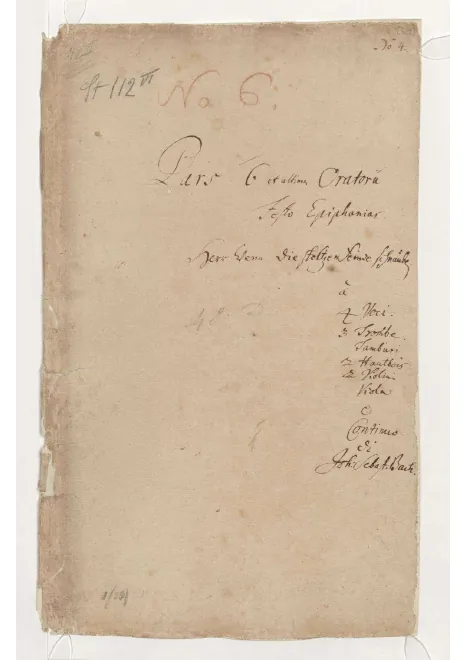 No 4.
St 112 VI
No 6.
Pars 6 et ultima Oratorii
Festo Epiphanias
Herr wenn die stoltzen Feinde schnauben
à
4 Voci.
3 Trombe.
Tambur.
2 Hautbois
2 Violin.
Viola
e
Continuo
di
Joh: Sebast: Bach.